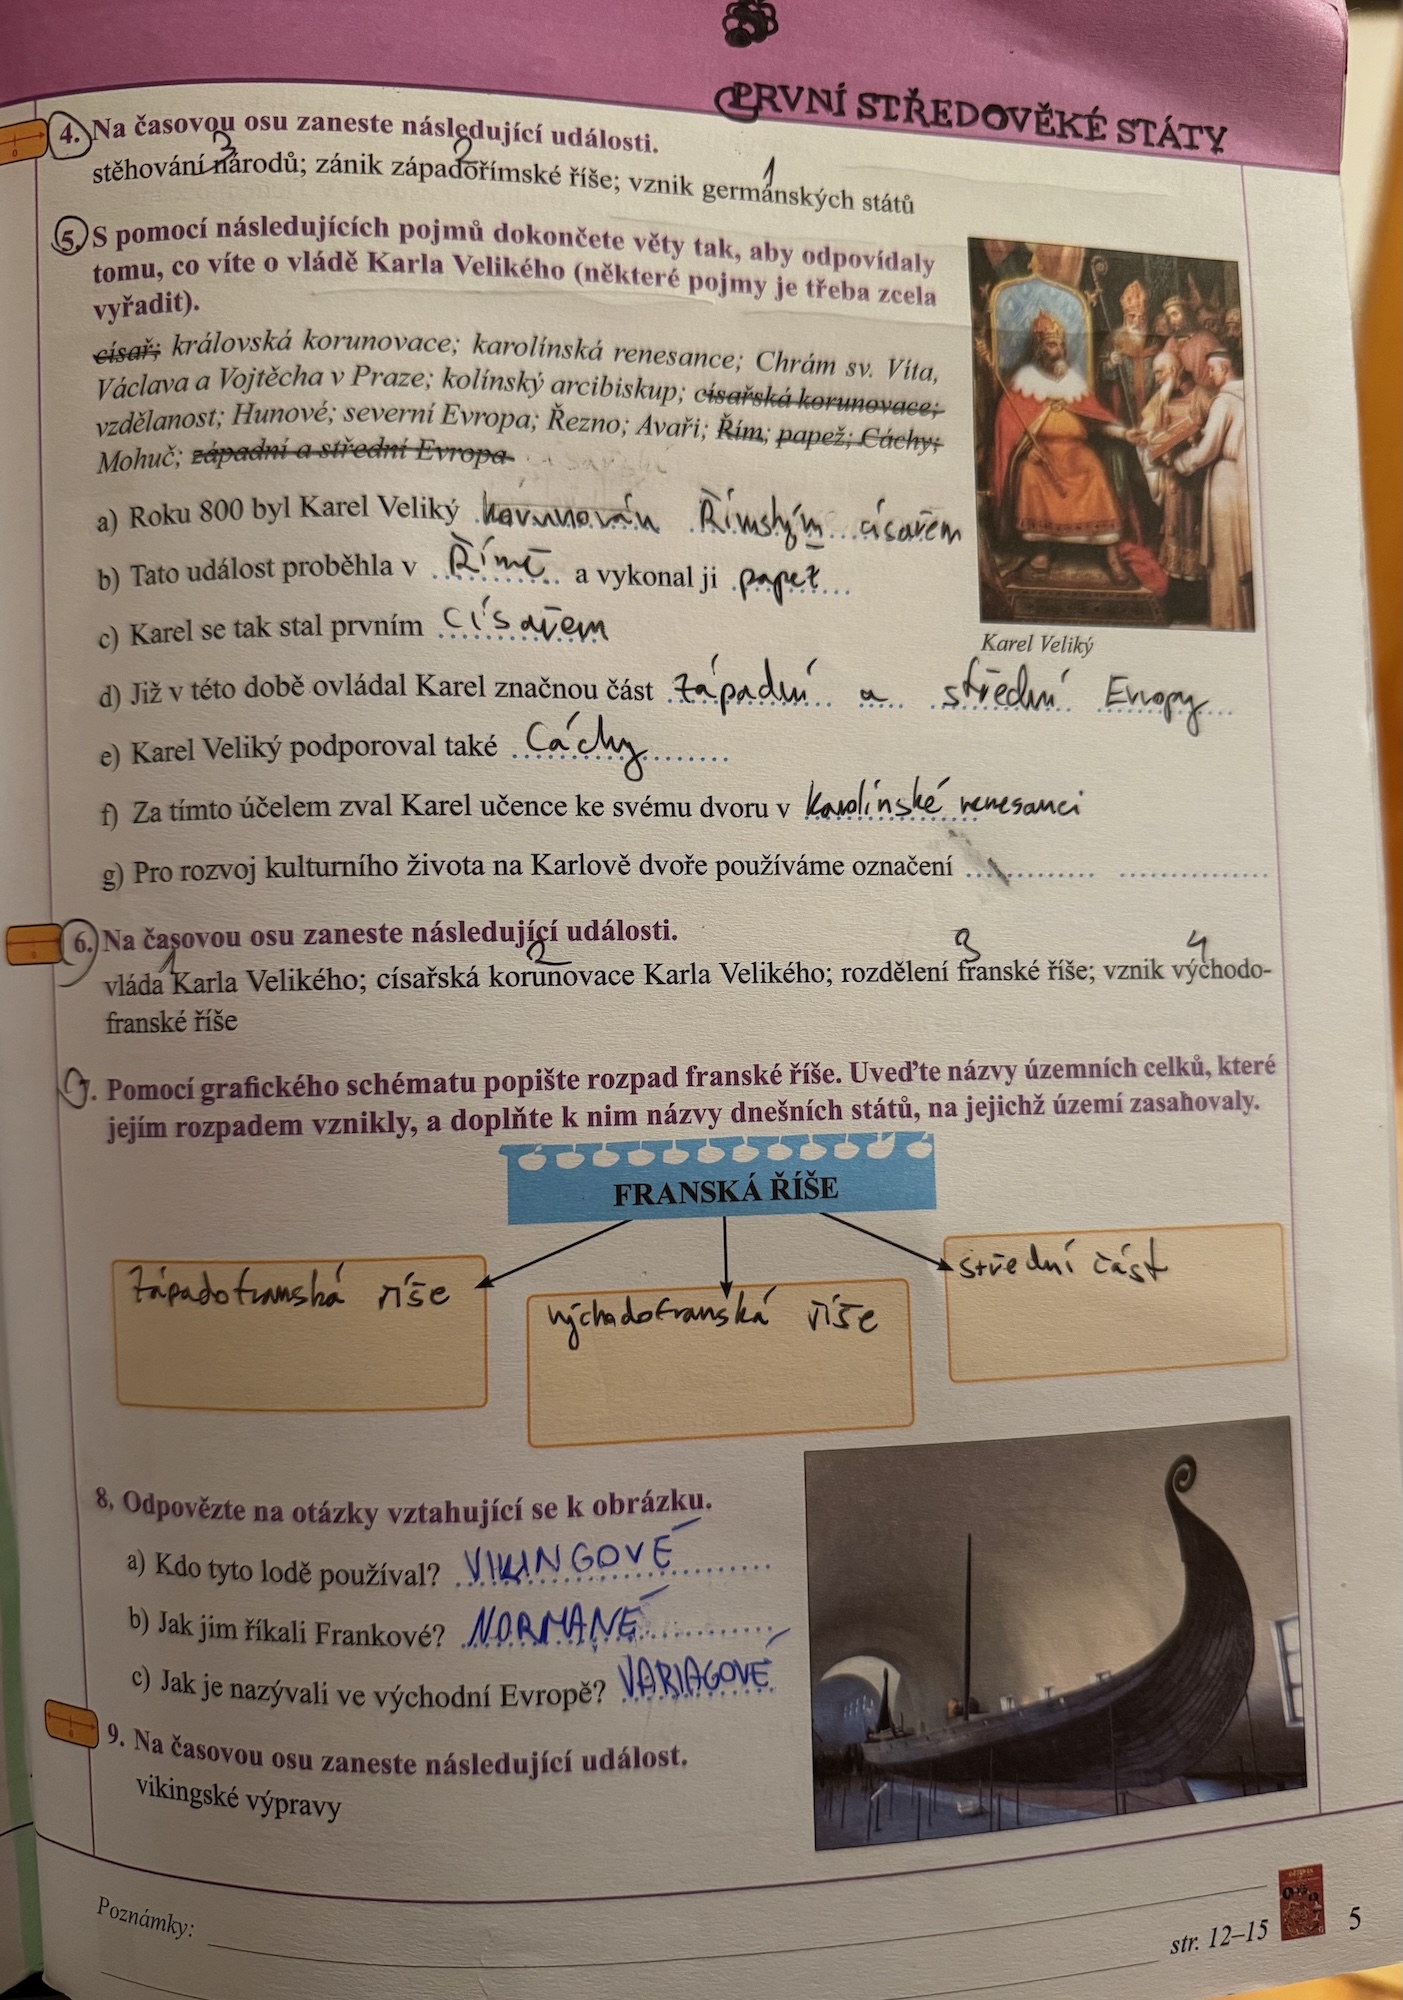 PRVNÍ STŘEDOVĚKÉ STÁTY
4. Na časovou osu zaneste následující události.
3 2 1
stěhování národů; zánik západořímské říše; vznik germánských států
5. S pomocí následujících pojmů dokončete věty tak, aby odpovídaly
tomu, co víte o vládě Karla Velikého (některé pojmy je třeba zcela
vyřadit).
císař; královská korunovace; karolínská renesance; Chrám sv. Víta,
Václava a Vojtěcha v Praze; kolínský arcibiskup; císařská korunovace;
vzdělanost; Hunové; severní Evropa; Řezno; Avaři; Řím; papež; Cáchy;
Mohuč; západní a střední Evropa
a) Roku 800 byl Karel Veliký korunován Římským císařem
b) Tato událost proběhla v Římě a vykonal ji papež
c) Karel se tak stal prvním císařem
Karel Veliký
d) Již v této době ovládal Karel značnou část západní a střední Evropy
e) Karel Veliký podporoval také Cáchy
f) Za tímto účelem zval Karel učence ke svému dvoru v karolínské renesanci
g) Pro rozvoj kulturního života na Karlově dvoře používáme označení
6. Na časovou osu zaneste následující události.
1 2 3 4
vláda Karla Velikého; císařská korunovace Karla Velikého; rozdělení franské říše; vznik východo-
franské říše
7. Pomocí grafického schématu popište rozpad franské říše. Uveďte názvy územních celků, které
jejím rozpadem vznikly, a doplňte k nim názvy dnešních států, na jejichž území zasahovaly.
FRANSKÁ ŘÍŠE
západofranská říše
východofranská říše
střední část
8. Odpovězte na otázky vztahující se k obrázku.
a) Kdo tyto lodě používal? VIKINGOVÉ
b) Jak jim říkali Frankové? NORMANÉ
c) Jak je nazývali ve východní Evropě? VARIAGOVÉ
9. Na časovou osu zaneste následující událost.
vikingské výpravy
Poznámky:
str. 12–15
5